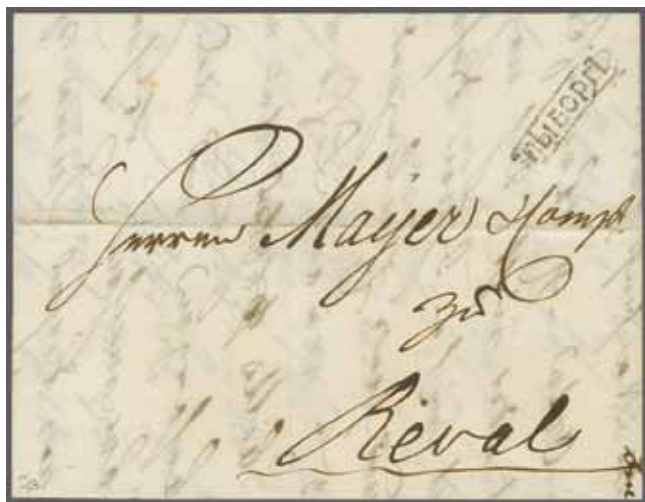 ВЫБОРГЪ
Herren Mayer Comp
zu
Reval